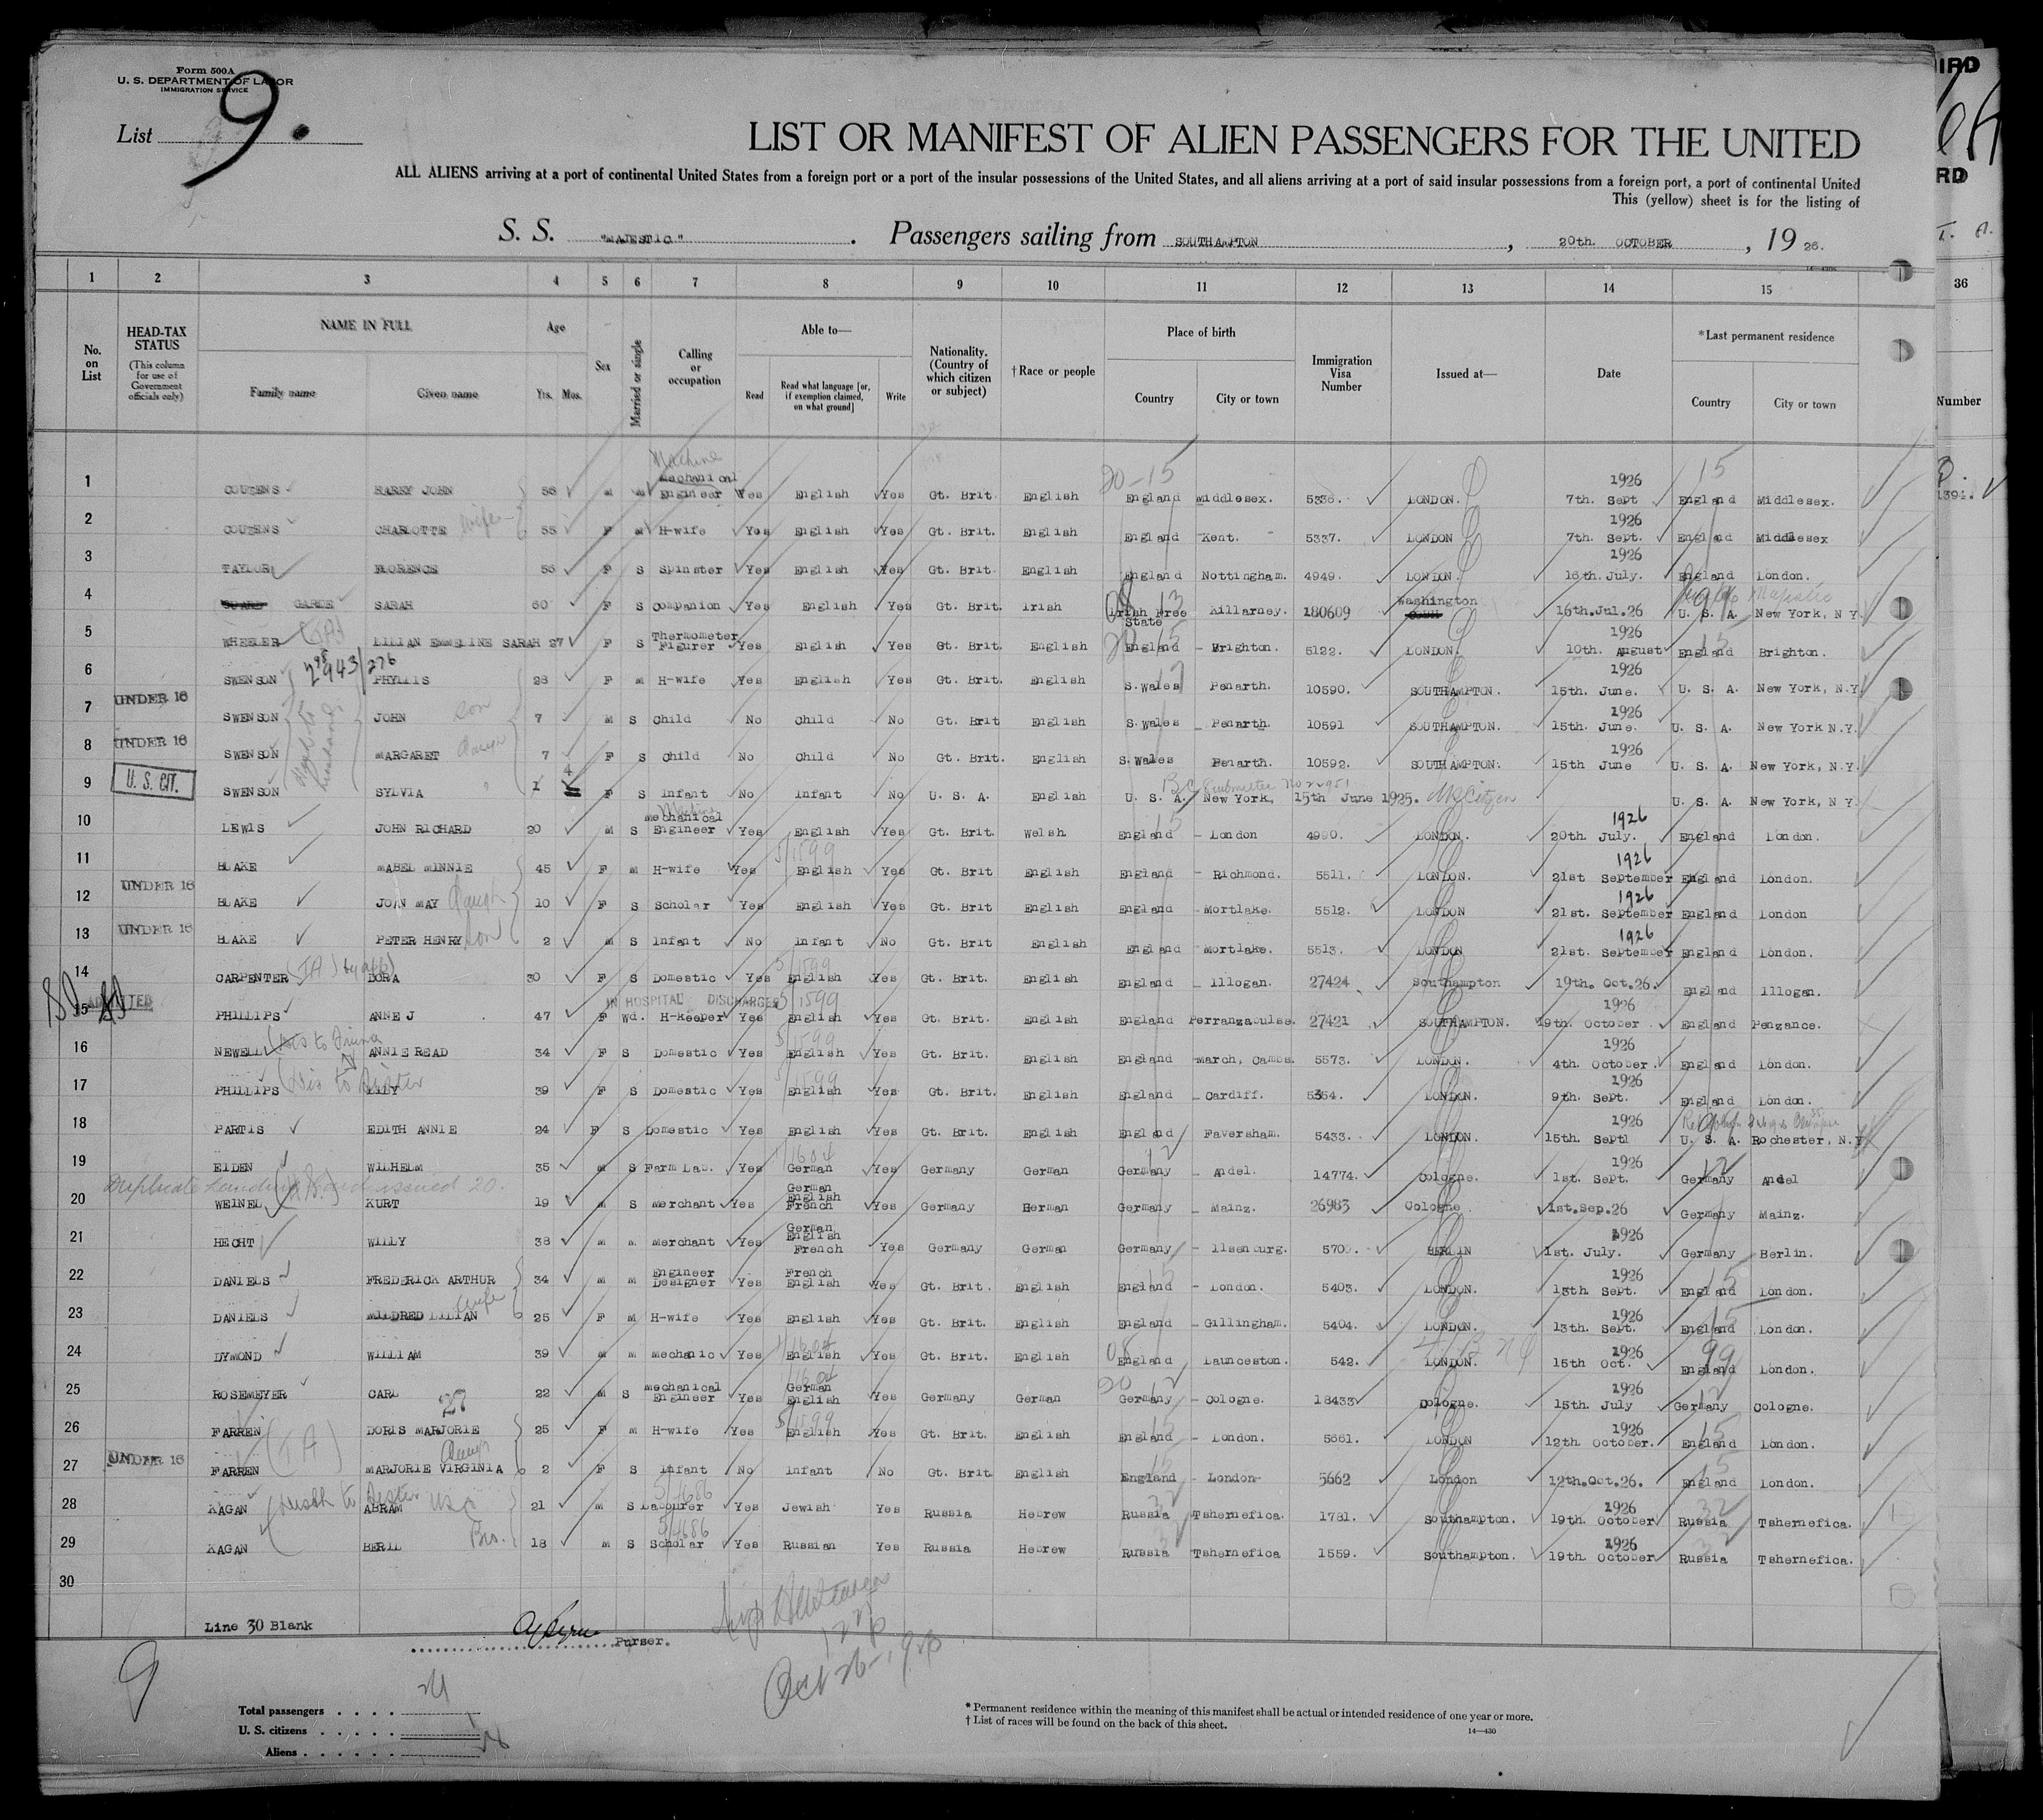 Form 500A
U. S. DEPARTMENT OF LABOR
IMMIGRATION SERVICE
List 9.
LIST OR MANIFEST OF ALIEN PASSENGERS FOR THE UNITED
ALL ALIENS arriving at a port of continental United States from a foreign port or a port of the insular possessions of the United States, and all aliens arriving at a port of said insular possessions from a foreign port, a port of continental United
This (yellow) sheet is for the listing of
S. S. "MAJESTIC". Passengers sailing from SOUTHAMPTON, 20th. OCTOBER, 19 26.
1 2 3 4 5 6 7 8 9 10 11 12 13 14 15 36
No. on List
HEAD-TAX STATUS (This column for use of Government officials only)
NAME IN FULL Family name Given name
Age Yrs. Mos.
Sex
Married or single
Calling or occupation
Able to— Read Read what language [or, if exemption claimed, on what ground] Write
Nationality. (Country of which citizen or subject)
†Race or people
Place of birth Country City or town
Immigration Visa Number
Issued at—
Date
*Last permanent residence Country City or town
Number
1 COUZENS HARRY JOHN 56 M M Machine Mechanical Engineer Yes English Yes Gt. Brit English England Middlesex. 5336. LONDON. 7th. Sept 1926 England Middlesex.
2 COUZENS CHARLOTTE wife 55 F M H-wife Yes English Yes Gt. Brit. English England Kent. 5337. LONDON 7th. Sept. 1926 England Middlesex
3 TAYLOR FLORENCE 56 F S Spinster Yes English Yes Gt. Brit. English England Nottingham. 4949. LONDON. 16th. July. 1926 England London.
4 GARDE SARAH 60 F S Companion Yes English Yes Gt. Brit. Irish Irish Free State Killarney. 180609 Washington 16th.Jul.26 U. S. A. New York, N Y.
5 WHEELER (TA) LILIAN EMMELINE SARAH 27 F S Thermometer Figurer Yes English Yes Gt. Brit. English England Brighton. 5122. LONDON. 10th. August 1926 England Brighton.
6 SWENSON PHYLLIS 28 F M H-wife Yes English Yes Gt. Brit. English S.Wales Penarth. 10590. SOUTHAMPTON. 15th. June. 1926 U. S. A. New York, N.Y.
7 UNDER 16 SWENSON JOHN son 7 M S Child No Child No Gt. Brit English S.Wales Penarth. 10591 SOUTHAMPTON. 15th. June. 1926 U. S. A. New York N.Y.
8 UNDER 16 SWENSON MARGARET 7 F S Child No Child No Gt. Brit. English S.Wales Penarth. 10592. SOUTHAMPTON. 15th June 1926 U. S. A. New York, N.Y.
9 U. S. CIT. SWENSON SYLVIA 1 4 F S Infant No Infant No U. S. A. English U. S. A. New York, 15th June 1925. U. S. A. New York, N Y.
10 LEWIS JOHN RICHARD 20 M S Machine Mechanical Engineer Yes English Yes Gt. Brit. Welsh England London 4990. LONDON. 20th. July. 1926 England London.
11 BLAKE MABEL MINNIE 45 F M H-wife Yes English Yes Gt. Brit English England Richmond. 5511. LONDON. 21st September 1926 England London.
12 UNDER 16 BLAKE JOAN MAY Daugh 10 F S Scholar Yes English Yes Gt. Brit English England Mortlake. 5512. LONDON 21st. September 1926 England London
13 UNDER 16 BLAKE PETER HENRY son 2 M S Infant No Infant No Gt. Brit English England Mortlake. 5513. LONDON 21st. September 1926 England London.
14 CARPENTER DORA 30 F S Domestic Yes English Yes Gt. Brit. English England Illogan. 27424 Southampton 19th. Oct.26. England Illogan.
IN HOSPITAL DISCHARGED
15 ADMITTED PHILLIPS ANNE J 47 F Wd. H-keeper Yes English Yes Gt. Brit. English England Perranzabulse. 27421 SOUTHAMPTON. 19th. October 1926 England Penzance.
16 NEWELL ANNIE READ 34 F S Domestic Yes English Yes Gt. Brit. English England March, Cambs. 5573. LONDON. 4th. October. 1926 England London.
17 PHILLIPS LILY 39 F S Domestic Yes English Yes Gt. Brit. English England Cardiff. 5354. LONDON. 9th. Sept. 1926 England London.
18 PARTIS EDITH ANNIE 24 F S Domestic Yes English Yes Gt. Brit. English England Faversham. 5433. LONDON. 15th. Septl 1926 U. S. A. Rochester, N.Y
19 EIDEN WILHELM 35 M S Farm Lab. Yes German Yes Germany German Germany Andel. 14774. Cologne. 1st. Sept. 1926 Germany Andel
Duplicate Landing Card issued 20.
20 WEINEL KURT 19 M S Merchant Yes German English French Yes Germany German Germany Mainz. 26983 Cologne 1st.Sep.26 Germany Mainz.
21 HECHT WILLY 38 M M Merchant Yes German English French Yes Germany German Germany Ilsenburg. 5700. BERLIN 1st. July. 1926 Germany Berlin.
22 DANIELS FREDERICK ARTHUR 34 M M Engineer Designer Yes French English Yes Gt. Brit. English England London. 5403. LONDON. 13th. Sept. 1926 England London.
23 DANIELS MILDRED LILIAN wife 25 F M H-wife Yes English Yes Gt. Brit. English England Gillingham. 5404. LONDON. 13th. Sept. 1926 England London.
24 DYMOND WILLIAM 39 M M Mechanic Yes English Yes Gt. Brit. English England Launceston. 542. LONDON. 15th Oct. 1926 England London.
25 ROSEMEYER CARL 22 M S Mechanical Engineer Yes German English Yes Germany German Germany Cologne. 18433 Cologne. 15th. July 1926 Germany Cologne.
26 FARREN (TA) DORIS MARJORIE 25 F M H-wife Yes English Yes Gt. Brit. English England London. 5661. LONDON 12th. October. 1926 England London.
27 UNDER 16 FARREN MARJORIE VIRGINIA Daugh 2 F S Infant No Infant No Gt. Brit English England London 5662 London 12th.Oct.26. England London.
28 KAGAN ABRAM 21 M S Labourer Yes Jewish Yes Russia Hebrew Russia Tshernefica. 1781. Southampton. 19th. October 1926 Russia Tshernefica.
29 KAGAN BERIL Bro. 18 M S Scholar Yes Russian Yes Russia Hebrew Russia Tshernefica 1559. Southampton. 19th. October 1926 Russia Tshernefica.
30
Line 30 Blank
Purser.
9
Total passengers
U. S. citizens
Aliens
* Permanent residence within the meaning of this manifest shall be actual or intended residence of one year or more.
† List of races will be found on the back of this sheet.
14—430